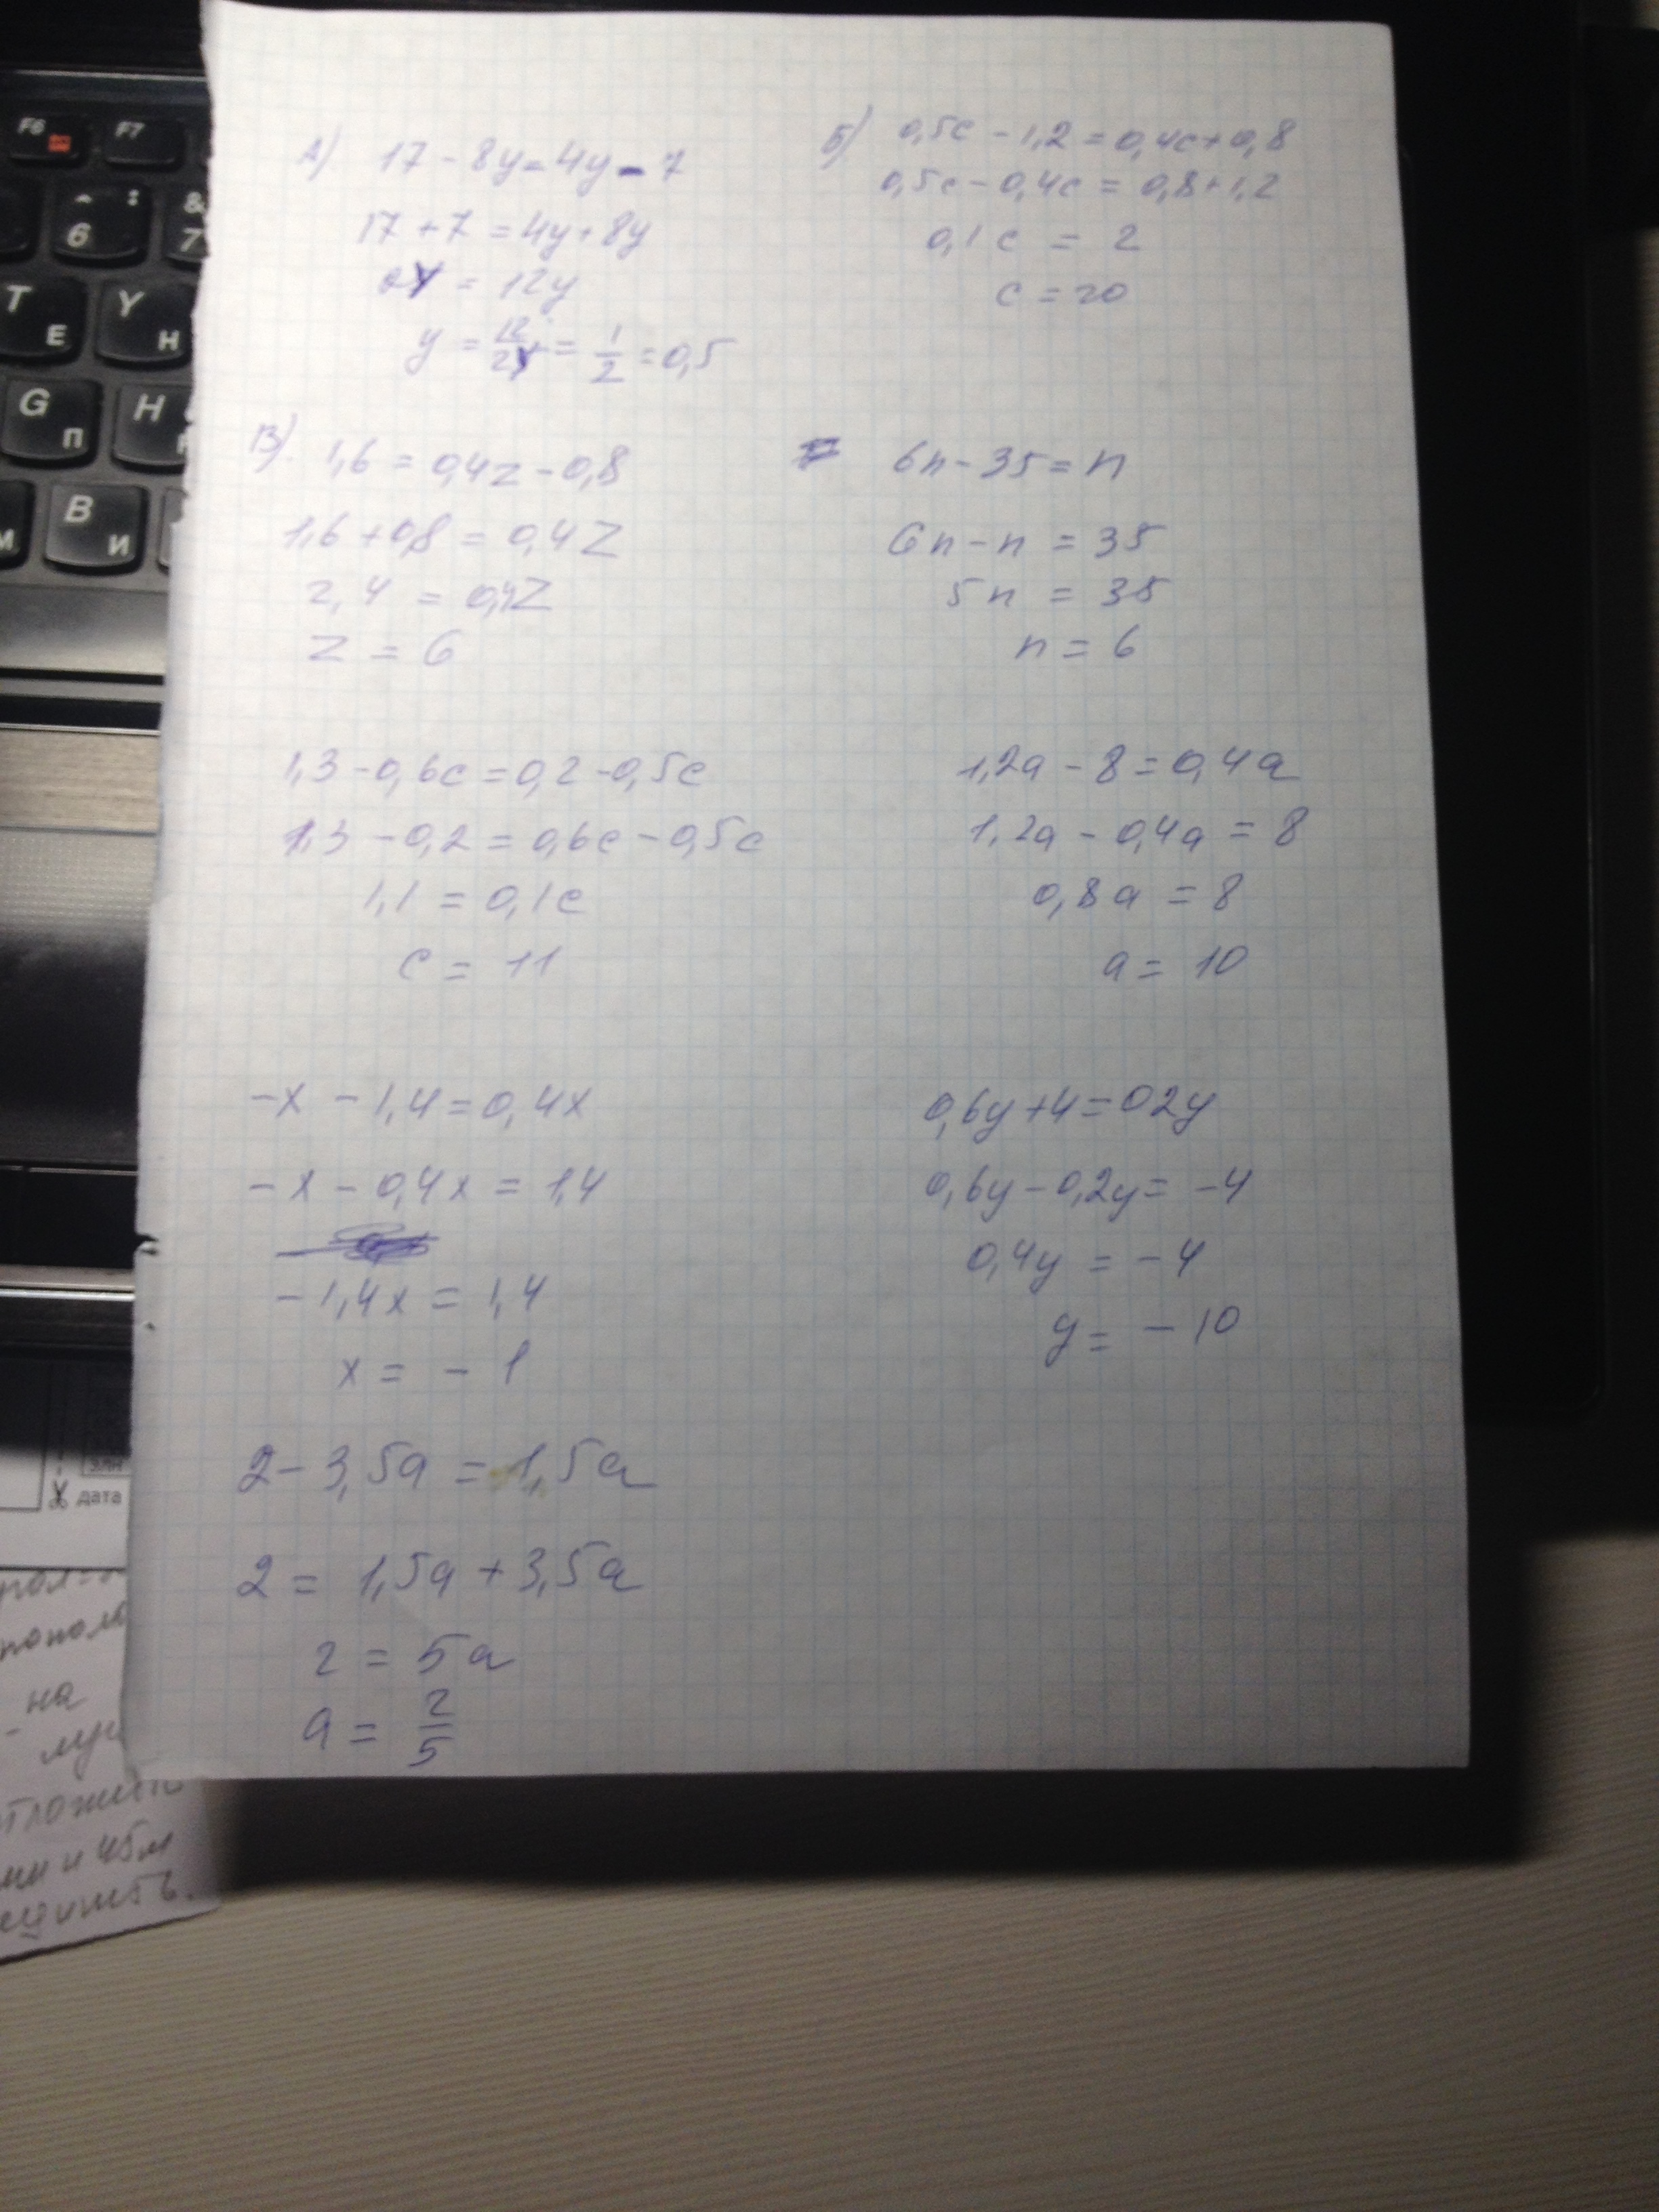 А) 17 - 8y = 4y - 7
17 + 7 = 4y + 8y
24 = 12y
y = 12/24 = 1/2 = 0,5
Б) 0,5c - 1,2 = 0,4c + 0,8
0,5c - 0,4c = 0,8 + 1,2
0,1c = 2
c = 20
В) 1,6 = 0,4z - 0,8
1,6 + 0,8 = 0,4z
2,4 = 0,4z
z = 6
6n - 35 = n
6n - n = 35
5n = 35
n = 6
1,3 - 0,6c = 0,2 - 0,5c
1,3 - 0,2 = 0,6c - 0,5c
1,1 = 0,1c
c = 11
1,2a - 8 = 0,4a
1,2a - 0,4a = 8
0,8a = 8
a = 10
-x - 1,4 = 0,4x
-x - 0,4x = 1,4
-1,4x = 1,4
x = -1
0,6y + 4 = 02y
0,6y - 0,2y = -4
0,4y = -4
y = -10
2 - 3,5a = 1,5a
2 = 1,5a + 3,5a
2 = 5a
a = 2/5
F6
F7
^ :
6
&
7
T Е
Y Н
G П
H
B И
М
дата
на
и 45м